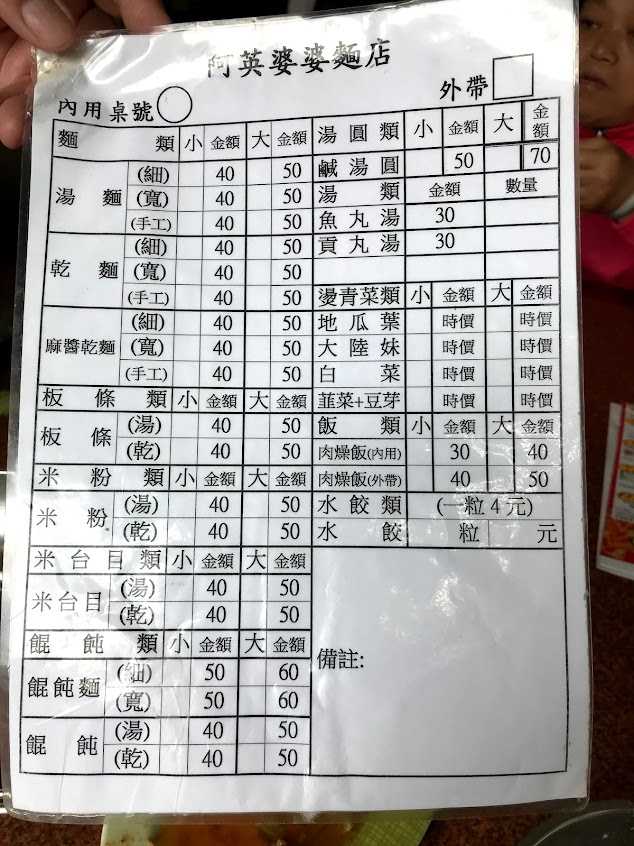 阿英婆婆麵店
內用桌號 外帶
麵類 小 金額 大 金額
湯麵 (細) 40 50
(寬) 40 50
(手工) 40 50
乾麵 (細) 40 50
(寬) 40 50
(手工) 40 50
麻醬乾麵 (細) 40 50
(寬) 40 50
(手工) 40 50
板條類 小 金額 大 金額
板條 (湯) 40 50
(乾) 40 50
米粉類 小 金額 大 金額
米粉 (湯) 40 50
(乾) 40 50
米台目類 小 金額 大 金額
米台目 (湯) 40 50
(乾) 40 50
餛飩類 小 金額 大 金額
餛飩麵 (細) 50 60
(寬) 50 60
餛飩 (湯) 40 50
(乾) 40 50
湯圓類 小 金額 大 金額
鹹湯圓 50 70
湯類 金額 數量
魚丸湯 30
貢丸湯 30
燙青菜類 小 金額 大 金額
地瓜葉 時價 時價
大陸妹 時價 時價
白菜 時價 時價
韮菜+豆芽 時價 時價
飯類 小 金額 大 金額
肉燥飯(內用) 30 40
肉燥飯(外帶) 40 50
水餃類 (一粒4元)
水餃 粒 元
備註: